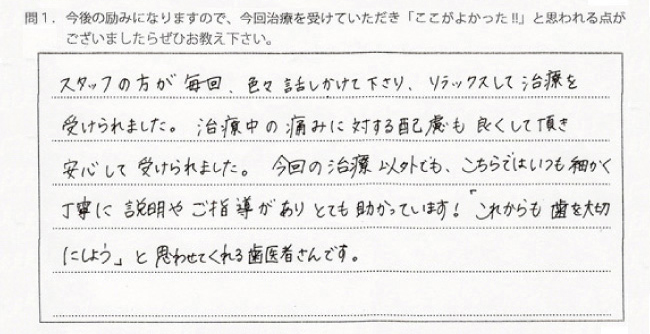 問1．今後の励みになりますので、今回治療を受けていただき「ここがよかった!!」と思われる点が
ございましたらぜひお教え下さい。
スタッフの方が毎回、色々話しかけて下さり、リラックスして治療を
受けられました。治療中の痛みに対する配慮も良くして頂き
安心して受けられました。今回の治療以外でも、こちらではいつも細かく
丁寧に説明やご指導がありとても助かっています!「これからも歯を大切
にしよう」と思わせてくれる歯医者さんです。